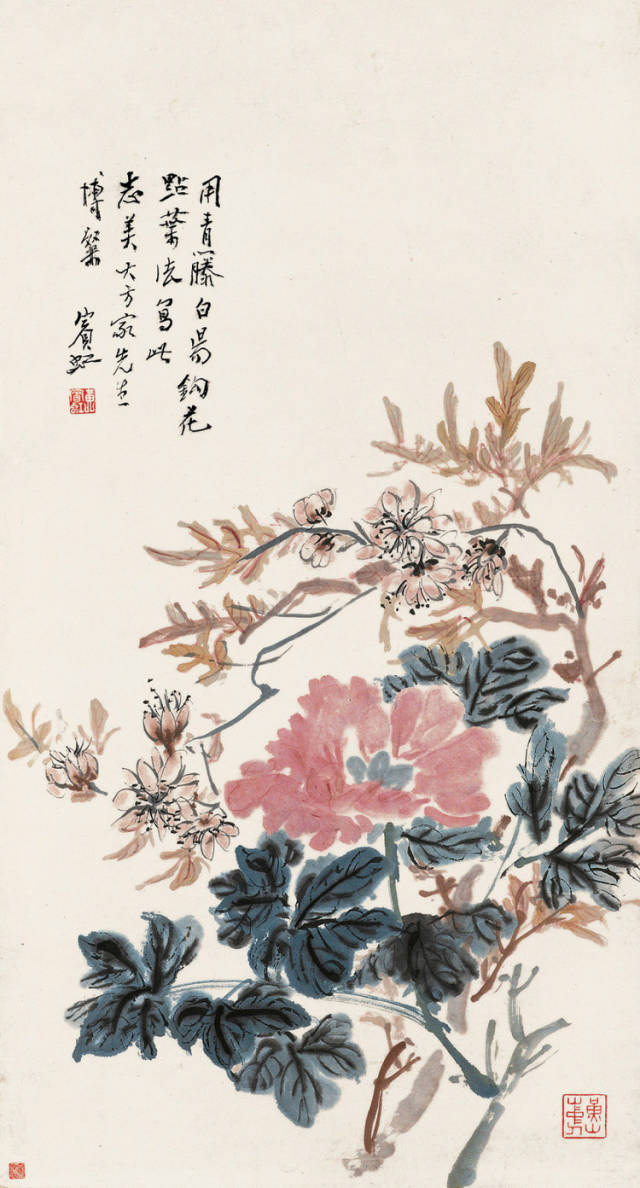 用青藤白昜鉤花
點葉法寫此
志美大方家先生
博粲
賓虹